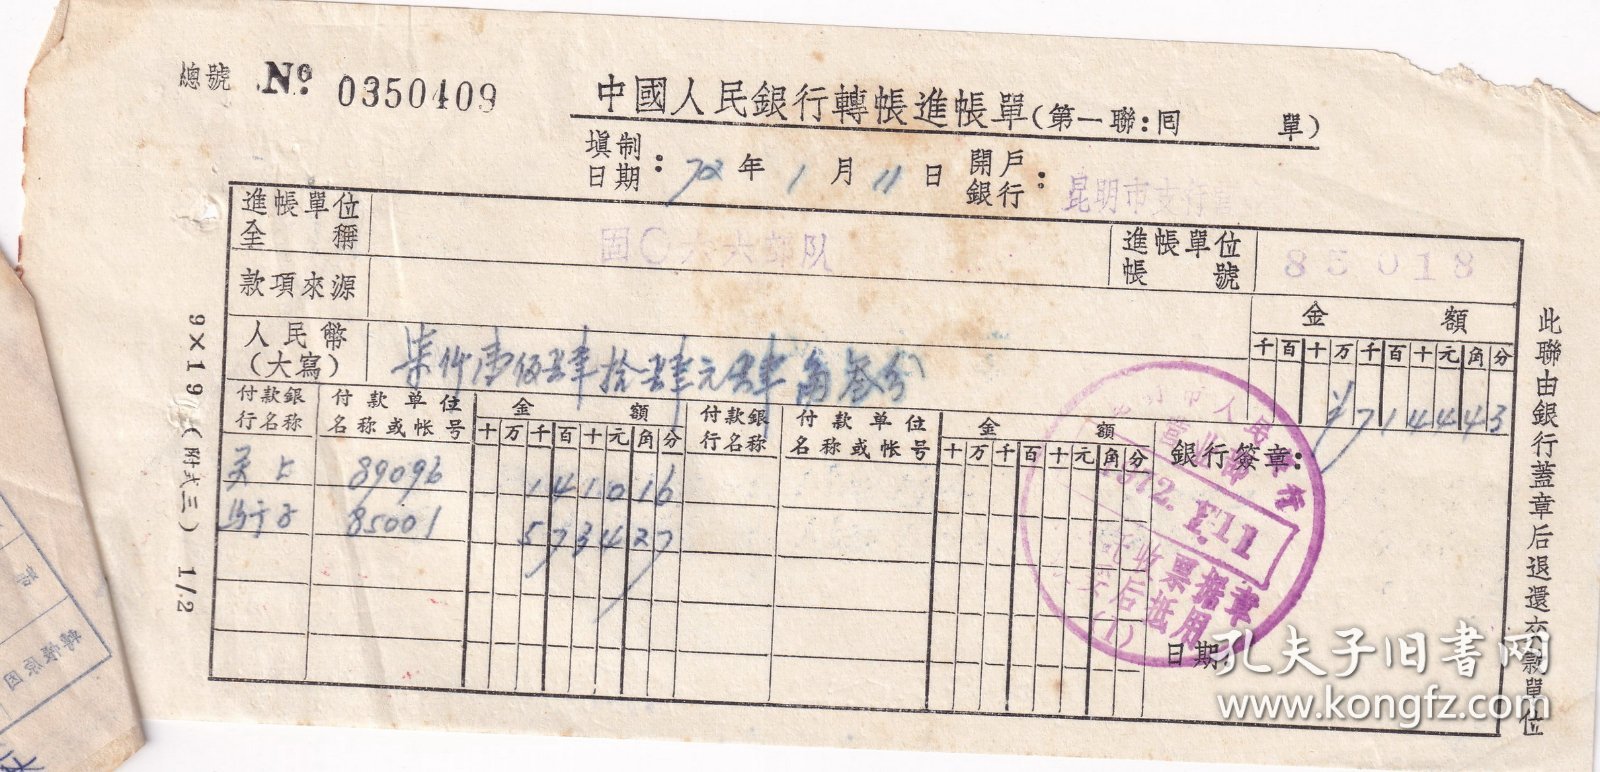 總號 No 0350409
中國人民銀行轉帳進帳單(第一聯:囘 單)
填制日期: 72 年 1 月 11 日 開戶銀行: 昆明市支行
進帳單位全稱 国〇六六部队 進帳單位帳號 85018
款項來源
金 額
千百十万千百十元角分
人民幣(大寫) 柒仟壹佰肆拾肆元肆角叁分
¥714443
付款銀行名称 付款单位名称或帐号 金 額 十万千百十元角分 付款銀行名称 付款单位名称或帐号 金 額 十万千百十元角分 銀行簽章:
89096 141016
85001 573427
市人民
營业部
1972.1.11
收票据章
妥后抵用
(1)
日期:
9×19 (附式三) 1/.2
此聯由銀行蓋章后退還交款單位
孔夫子旧书网
www.kongfz.com
轉帳原因